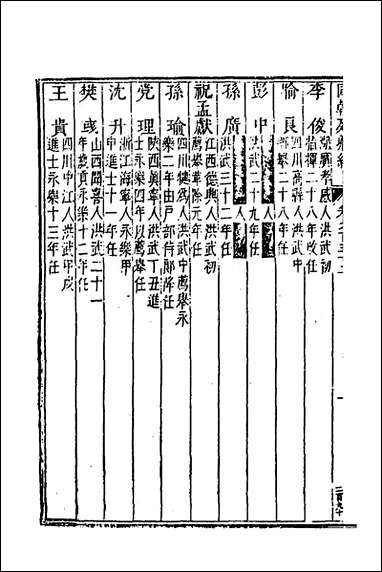 國朝列卿紀 卷之
李俊 湖廣孝感人洪武初
薦擢二十八年改任
喻良 四川高縣人洪武中
二十八年任
彭中 人
洪武二十九年任
孫廣 人
洪武三十二年任
祝孟獻 江西德興人洪武初
薦舉革除元年任
孫瑜 四川犍為人洪武中薦舉永
樂二年由戶部侍郎降任
党理 陝西真寧人洪武丁丑進
士永樂四年以薦舉任
沈升 浙江海寧人永樂甲
申進士十一年任
樊彧 山西聞喜人洪武二十一
年歲貢永樂十二年任
王貴 四川中江人洪武甲戌
進士永樂十三年任